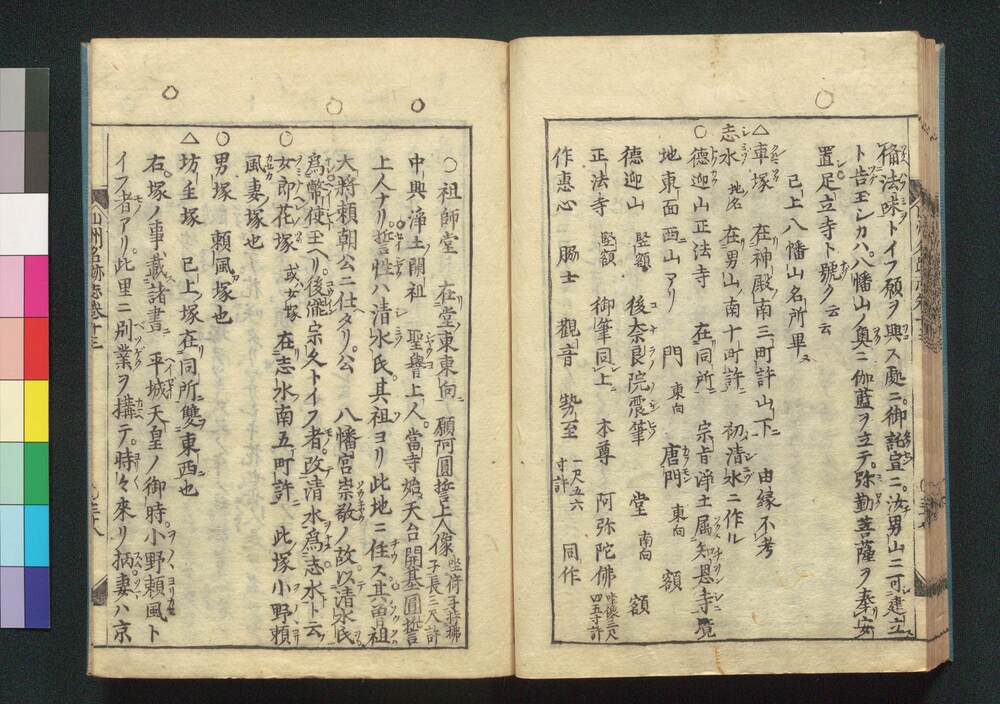 脩法味トイフ願ヲ興ス處ニ御託宣ニ汝男山ニ可建立
ト告玉シカハ八幡山ノ奥ニ伽藍ヲ立テ弥勤菩薩ヲ奉安
置足立寺ト號ク云云
已上八幡山名所畢
△車塚 在神殿南三町許山下 由縁不考
志水 地名 在男山南十町許 初清水ニ作ル
○德迎山正法寺 在同所 宗旨浄土属知恩寺境
地東面西山アリ 門 東向 唐門 東向 額
德迎山 竪額 後奈良院震筆 堂 南向 額
正法寺 竪額 御筆同上 本尊 阿弥陀佛 坐像三尺四五寸許
作惠心 脇士 觀音 勢至 一尺五六寸許 同作
○祖師堂 在堂東東向 願阿圓誓上人像 坐倚子持拂子長三尺許
中興浄土開祖 聖譽上人當寺始天台開基圓誓
上人ナリ誓姓ハ清水氏其祖ヨリ此地ニ住ス其曽祖
大將頼朝公ニ仕ヘタリ公 八幡宮崇敬ノ故以清水氏
為幣使玉ヘリ後備宗久トイフ者改清水為志水ト云
○女郎花塚 或女塚 在志水南五町許 此塚小野頼
風妻塚也
○男塚 頼風塚也
△坊主塚 已上塚在同所雙東西也
右塚ノ事載諸書 平城天皇ノ御時小野頼風ト
イフ者アリ此里ニ別業ヲ搆テ時々來リ柄妻ハ京
山州名跡志巻十三